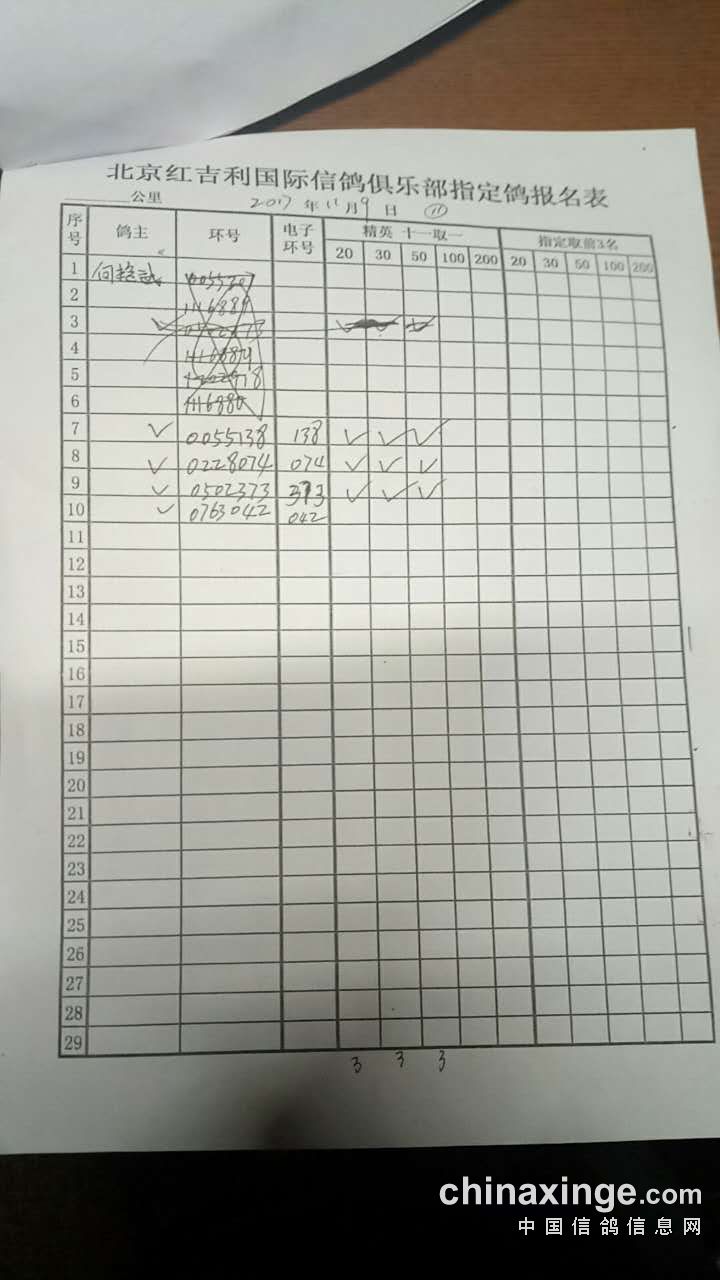 北京红吉利国际信鸽俱乐部指定鸽报名表
公里 2017 年 11 月 9 日 ⑪
序号 鸽主 环号 电子环号 精英 十一取一 指定取前3名
20 30 50 100 200 20 30 50 100 200
1
2 1116889
3
4
5
6 1116880
7 ✓ 0055138 138 ✓ ✓ ✓
8 ✓ 0228074 074 ✓ ✓ ✓
9 ✓ 0502373 373 ✓ ✓ ✓
10 ✓ 0763042 042
11
12
13
14
15
16
17
18
19
20
21
22
23
24
25
26
27
28
29
3 3 3
chinaxinge.com
中国信鸽信息网